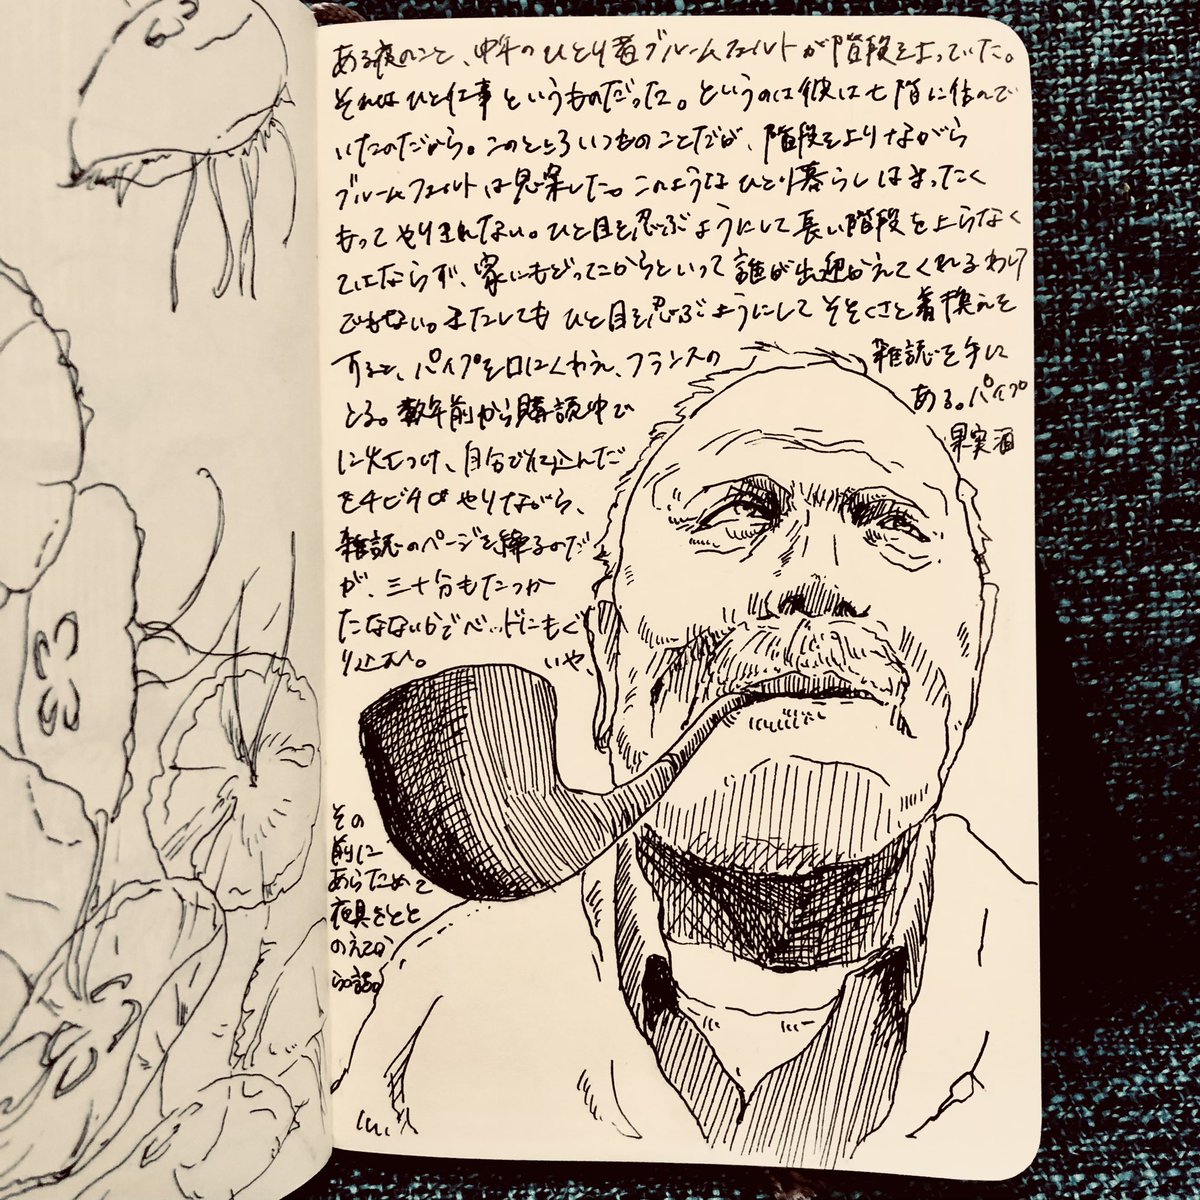 ある夜のこと、中年のひとり者ブルームフェルトが階段を上っていた。
それはひと仕事というものだった。というのは彼は七階に住んで
いたのだから。このところいつものことだが、階段を上りながら
ブルームフェルトは思案した。このようなひとり暮らしはまったく
もってやりきれない。ひと目を忍ぶようにして長い階段を上らなく
てはならず、家にもどってこからといって誰が出迎かえてくれるわけ
でもない。またしてもひと目を忍ぶようにしてそそくさと着換えを
すると、パイプを口にくわえ、フランスの雑誌を手に
とる。数年前から購読中である。パイプ
に火をつけ、自分で仕込んだ果実酒
をチビチビやりながら、
雑誌のページを繰るのだ
が、三十分もたつか
たたないかでベッドにもぐ
り込む。いや、
その
前に
あらためて
夜具をとと
のえてか
らの話。